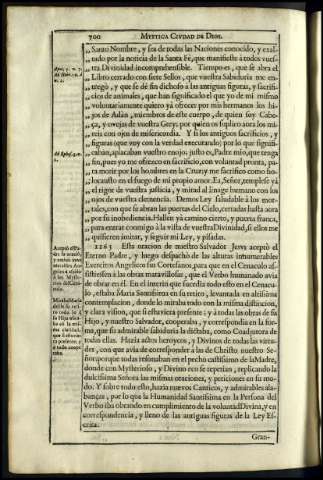 700 MYSTICA CIVDAD DE DIOS.
„ Santo Nombre, y sea de todas las Naciones conocido, y exal-
„ tado por la noticia de la Santa Fè, que manifieste à todos vuestra
„ Divinidad incomprehensible. Tiempo es, que se abra el
„ Libro cerrado con siete Sellos, que vuestra Sabiduria me en-
„ tregò, y que se dè fin dichoso à las antiguas figuras, y sacrifi-
„ cios de animales, que han significado el que yo de mi mismo
„ voluntariamente quiero yà ofrecer por mis hermanos los hi-
„ jos de Adàn, miembros de este cuerpo, de quien soy Cabe-
„ ça, y ovejas de vuestra Grey, por quien os suplico aora los mi-
„ reis con ojos de misericordia. Y si los antiguos sacrificios, y
„ figuras (que voy con la verdad executando) por lo que signifi-
„ caban, aplacaban vuestro enojo, justo es, Padre mio, que tenga
„ fin, pues yo me ofrezco en sacrificio, con voluntad pronta, pa-
„ ra morir por los hombres en la Cruz, y me sacrifico como ho-
„ locausto en el fuego de mi proprio amor. Ea, Señor, templese yà
„ el rigor de vuestra justicia, y mirad al linage humano con los
„ ojos de vuestra clemencia. Demos Ley saludable à los mor-
„ tales, con que se abran las puertas del Cielo, cerradas hasta aora
„ por su inobediencia. Hallen yà camino cierto, y puerta franca,
„ para entrar conmigo à la vista de vuestra Divinidad, si ellos me
„ quisieren imitar, y seguir mi Ley, y pisadas.
1163 Esta oracion de nuestro Salvador Jesvs aceptò el
Eterno Padre, y luego despachò de las alturas innumerables
Exercitos Angelicos sus Cortesanos, para que en el Cenaculo as-
sistiessen à las obras maravillosas, que el Verbo humanado avia
de obrar en èl. En el interin que sucedia todo esto en el Cenacu-
lo, estaba Maria Santissima en su retiro, levantada en altissima
contemplacion, donde lo miraba todo con la misma distincion,
y clara vision, que si estuviera presente; y à todas las obras de su
Hijo, y nuestro Salvador, cooperaba, y correspondia en la for-
ma, que su admirable sabiduria la dictaba, como Coadjutora de
todas ellas. Hazia actos heroycos, y Divinos de todas las virtu-
des, con que avia de corresponder à las de Christo nuestro Se-
ñor porque todas resonaban en el pecho castissimo de la Madre,
donde con Mysterioso, y Divino eco se repetian, replicando la
dulcissima Señora las mismas oraciones, y peticiones en su mo-
do. Y sobre todo esto, hazia nuevos Canticos, y admirables ala-
banças, por lo que la Humanidad Santissima en la Persona del
Verbo iba obrando en cumplimiento de la voluntad Divina, y en
correspondencia, y lleno de las antiguas figuras de la Ley Es-
crita.
Gran-